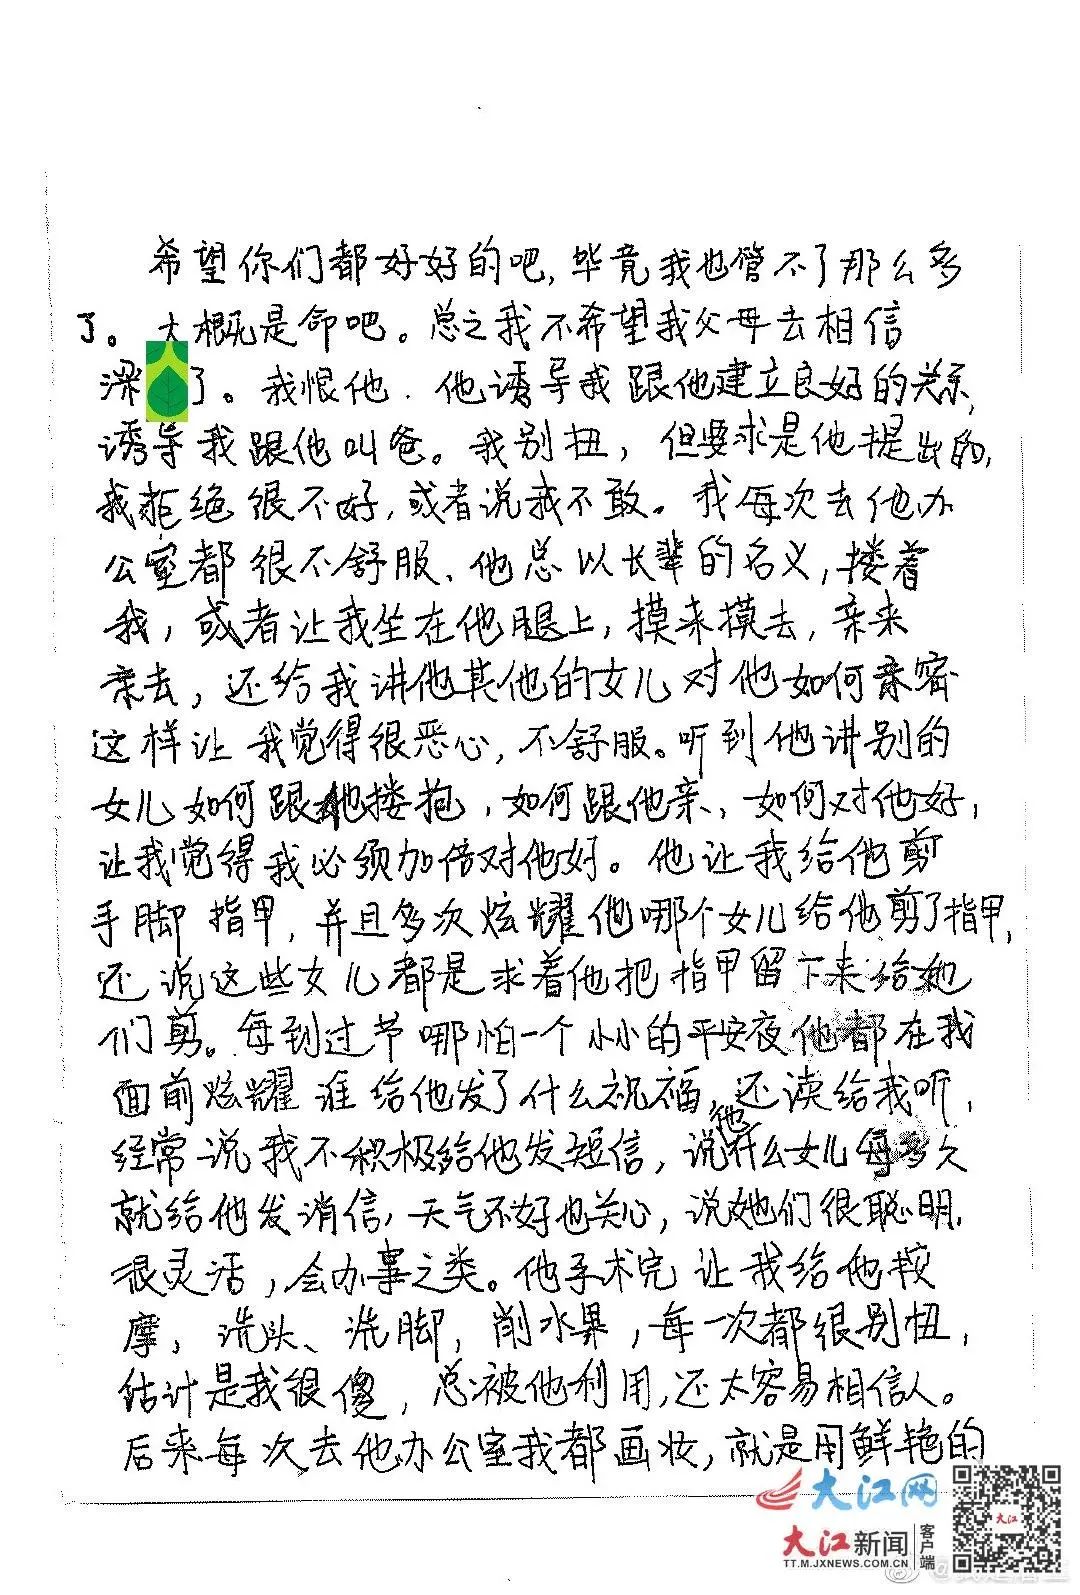 希望你们都好好的吧，毕竟我也管不了那么多
了。大概是命吧。总之我不希望我父母去相信
梁 了。我恨他．他诱导我跟他建立良好的关系，
诱导我跟他叫爸。我别扭，但要求是他提出的，
我拒绝很不好，或者说我不敢。我每次去他办
公室都很不舒服、他总以长辈的名义，搂着
我，或者让我坐在他腿上，摸来摸去，亲来
亲去，还给我讲他其他的女儿对他如何亲密
这样让我觉得很恶心，不舒服。听到他讲别的
女儿如何跟他搂抱，如何跟他亲、如何对他好，
让我觉得我必须加倍对他好。他让我给他剪
手脚指甲，并且多次炫耀他哪个女儿给他剪了指甲，
还说这些女儿都是求着他把指甲留下来给她
们剪。每到过节哪怕一个小小的平安夜他都在我
面前炫耀谁给他发了什么祝福，还读给我听，
经常说我不积极给他发短信，说他什么女儿每多久
就给他发消信，天气不好也关心，说她们很聪明，
很灵活，会办事之类。他手术完让我给他按
摩，洗头、洗脚，削水果，每一次都很别扭，
估计是我很傻，总被他利用，还太容易相信人。
后来每次去他办公室我都画妆，就是用鲜艳的
大江网
大江新闻
客户端
TT.M.JXNEWS.COM.CN
大江